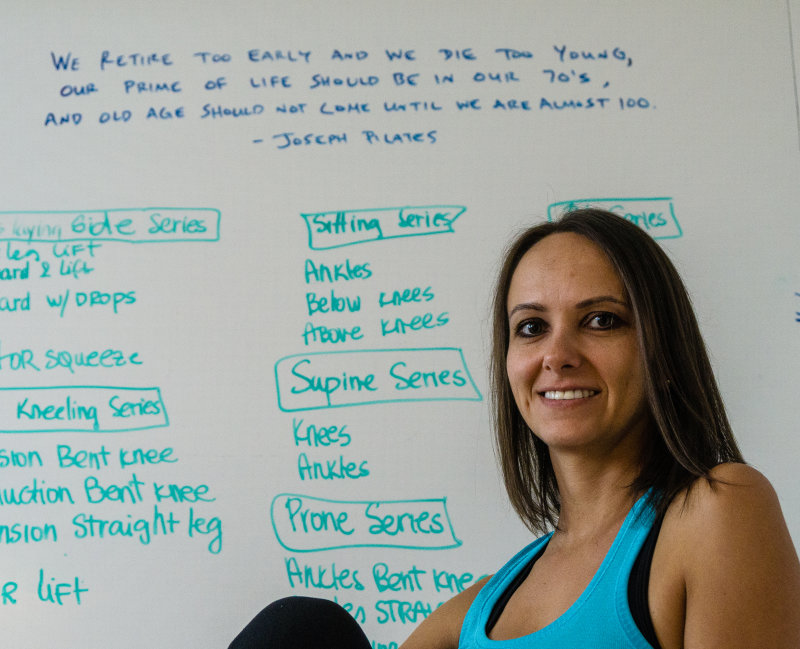 WE RETIRE TOO EARLY AND WE DIE TOO YOUNG,
OUR PRIME OF LIFE SHOULD BE IN OUR 70'S,
AND OLD AGE SHOULD NOT COME UNTIL WE ARE ALMOST 100.
- JOSEPH PILATES
laying Side Series
leg LIFT
& lift
w/ DROPS
SQUEEZE
Kneeling Series
Bent knee
Bent knee
Straight leg
lift
Sitting Series
Ankles
Below knees
Above knees
Supine Series
Knees
Ankles
Prone Series
Ankles Bent knee
Series